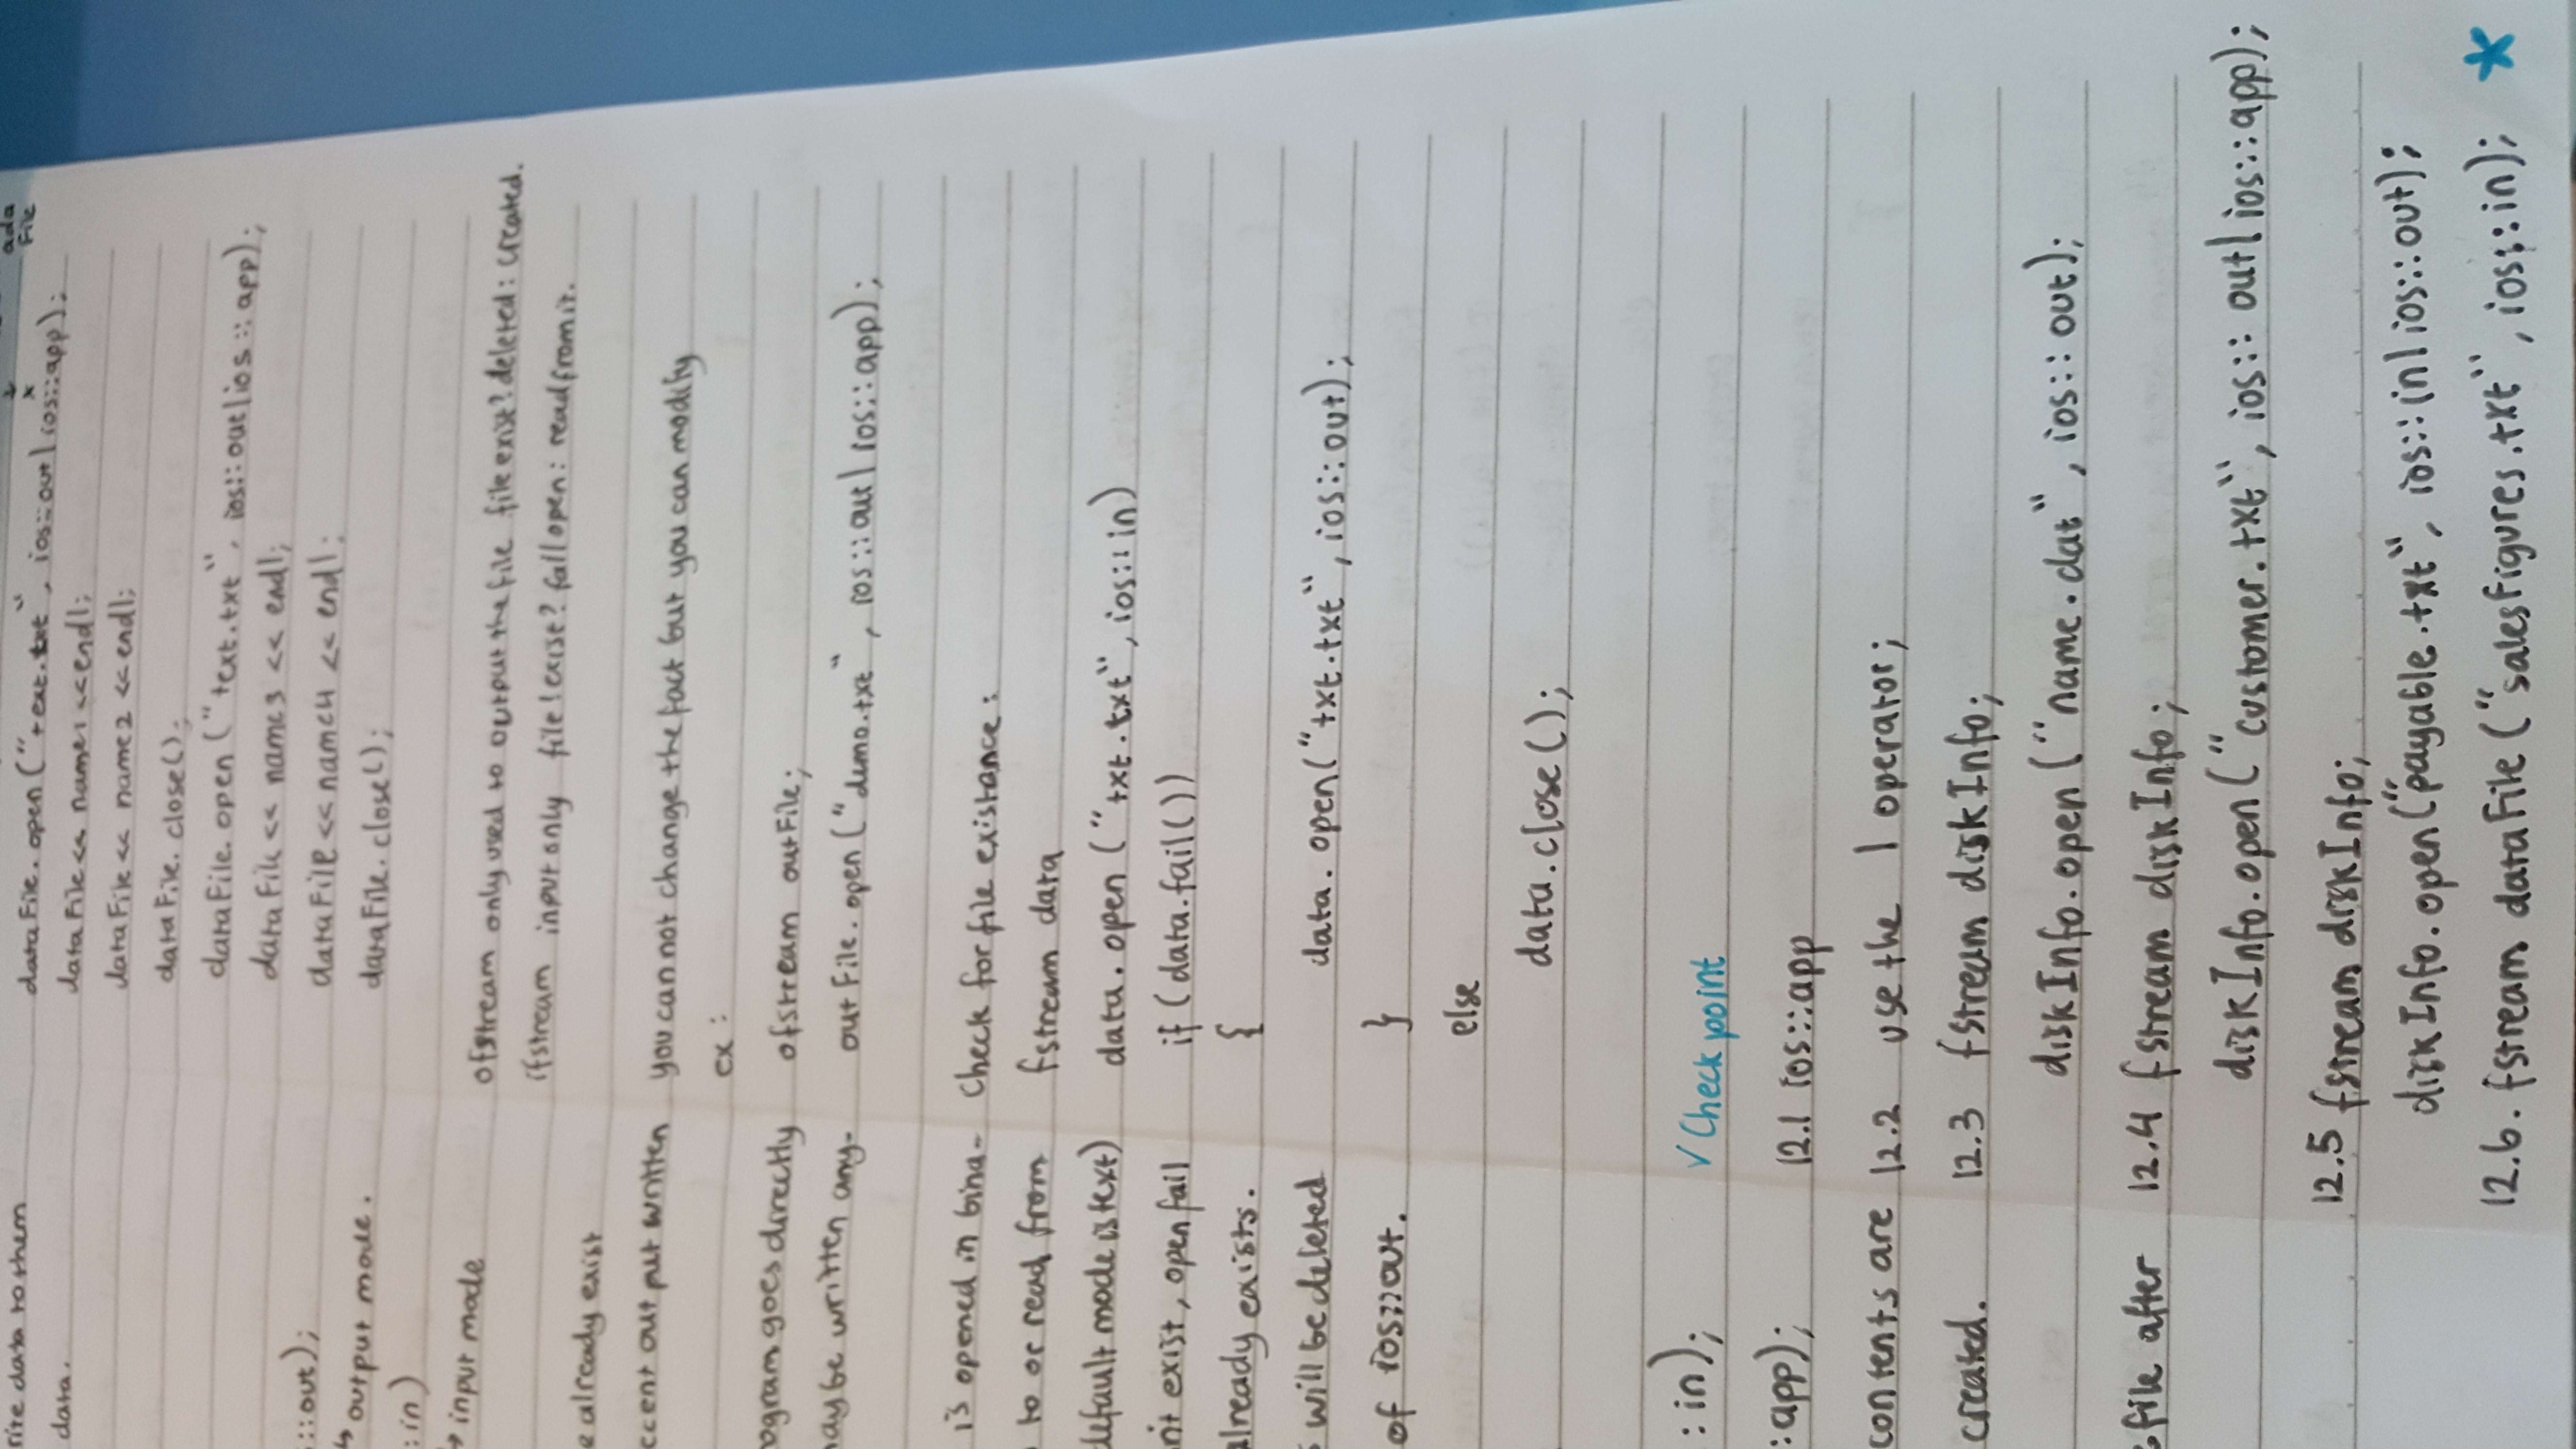 rite data to them
data.
::out);
↳ output mode.
:in)
→ input mode
e already exist
ccent out put written
ogram goes directly
may be written any-
is opened in bina-
to or read from
default mode is text)
n't exist, open fail
already exists.
s will be deleted
of ios::out.
:in);
:app);
contents are
created.
file after
ada
file
dataFile.open("text.txt", ios::out|ios::app);
dataFile<< name1 <<endl;
dataFile<< name2 <<endl;
dataFile.close();
dataFile.open("text.txt", ios::out|ios::app);
dataFile<< name3 << endl;
dataFile<<name4 << endl;
dataFile.close();
ofstream only used to output the file file exist? deleted: created.
ifstream input only file!exist? fail open: read from it.
you can not change the fact but you can modify
ex:
ofstream outFile;
outFile.open("demo.txt", ios::out|ios::app);
Check for file existance:
fstream data
data.open("txt.txt", ios::in)
if (data.fail())
{
data.open("txt.txt", ios::out);
}
else
data.close();
√ Check point
12.1 ios::app
12.2 use the | operator;
12.3 fstream diskInfo;
diskInfo.open("name.dat", ios::out);
12.4 fstream diskInfo;
diskInfo.open("customer.txt", ios::out|ios::app);
12.5 fstream diskInfo;
diskInfo.open("payable.txt", ios::in|ios::out);
12.6. fstream dataFile("salesfigures.txt", ios::in); *